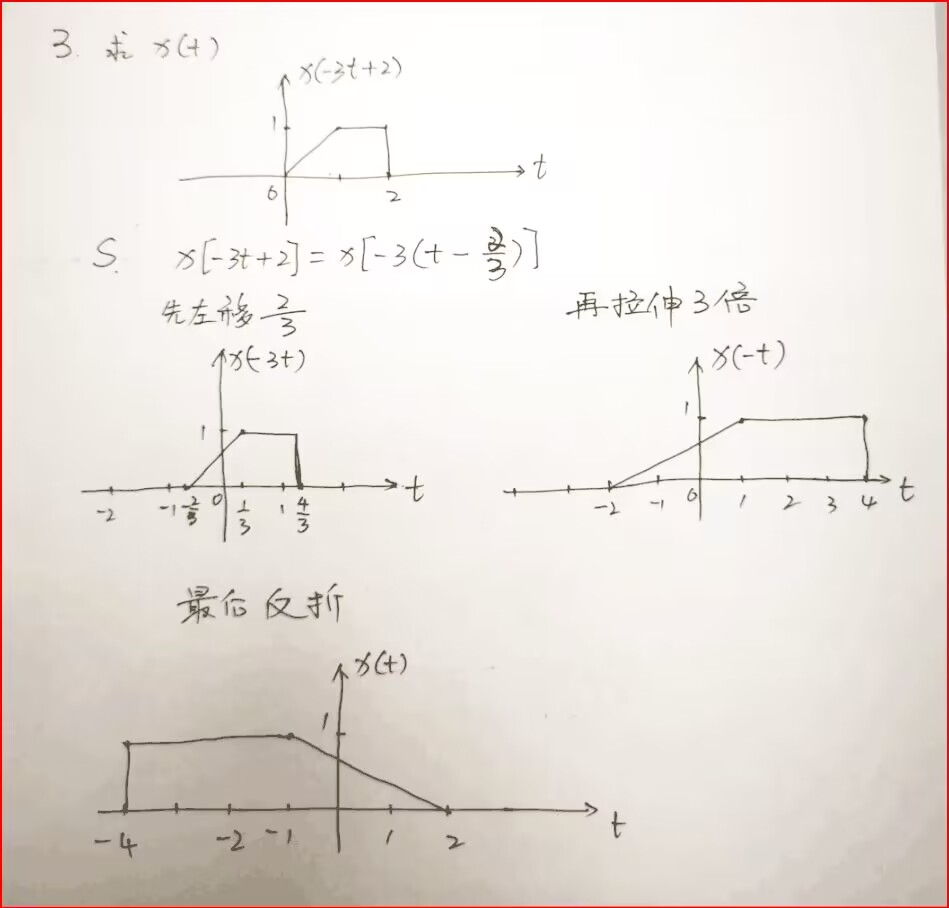 3. 求 x(t)
x(-3t+2)
1
0 2 t
S. x[-3t+2] = x[-3(t - 2/3)]
先左移 2/3
再拉伸3倍
x(-3t)
1
-2 -1 -2/3 0 1/3 1 4/3 t
x(-t)
1
-2 -1 0 1 2 3 4 t
最后反折
x(t)
1
-4 -2 -1 1 2 t